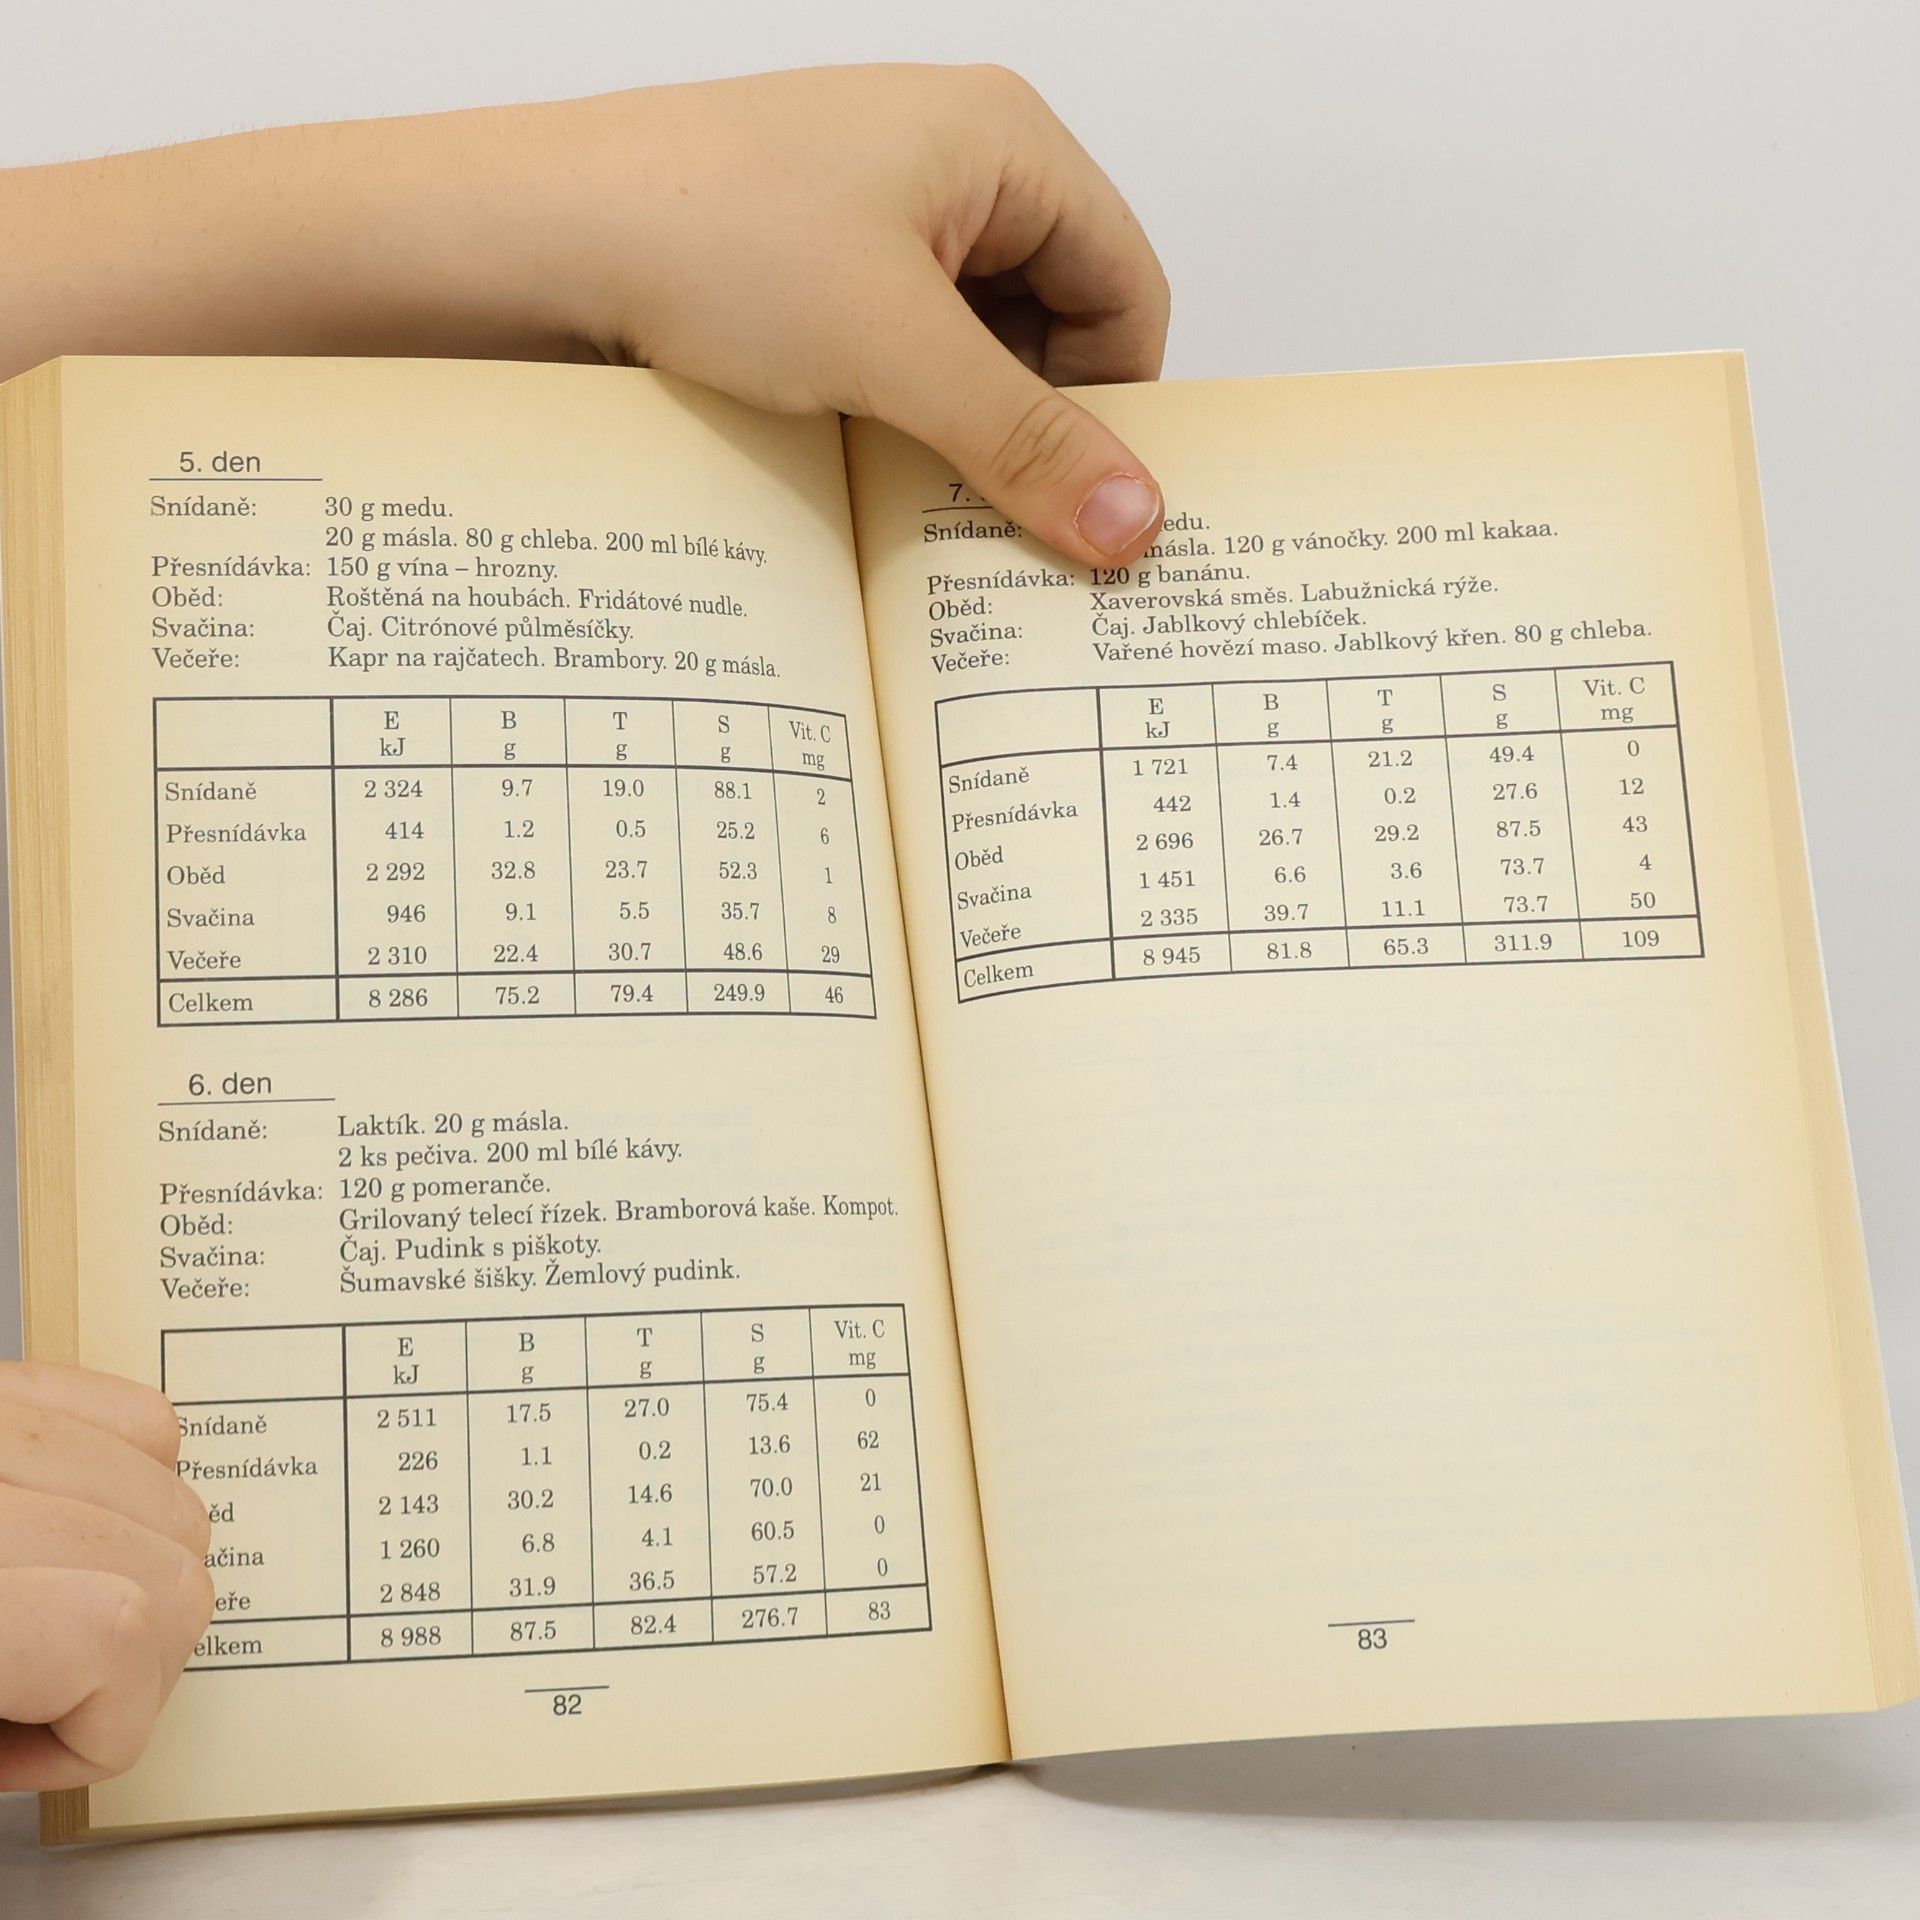 5. den
Snídaně: 30 g medu.
20 g másla. 80 g chleba. 200 ml bílé kávy.
Přesnídávka: 150 g vína – hrozny.
Oběd: Roštěná na houbách. Fridátové nudle.
Svačina: Čaj. Citrónové půlměsíčky.
Večeře: Kapr na rajčatech. Brambory. 20 g másla.
E B T S Vit. C
kJ g g g mg
Snídaně 2 324 9.7 19.0 88.1 2
Přesnídávka 414 1.2 0.5 25.2 6
Oběd 2 292 32.8 23.7 52.3 1
Svačina 946 9.1 5.5 35.7 8
Večeře 2 310 22.4 30.7 48.6 29
Celkem 8 286 75.2 79.4 249.9 46
6. den
Snídaně: Laktík. 20 g másla.
2 ks pečiva. 200 ml bílé kávy.
Přesnídávka: 120 g pomeranče.
Oběd: Grilovaný telecí řízek. Bramborová kaše. Kompot.
Svačina: Čaj. Pudink s piškoty.
Večeře: Šumavské šišky. Žemlový pudink.
E B T S Vit. C
kJ g g g mg
Snídaně 2 511 17.5 27.0 75.4 0
Přesnídávka 226 1.1 0.2 13.6 62
ěd 2 143 30.2 14.6 70.0 21
ačina 1 260 6.8 4.1 60.5 0
eře 2 848 31.9 36.5 57.2 0
elkem 8 988 87.5 82.4 276.7 83
82
7.
Snídaně: edu.
másla. 120 g vánočky. 200 ml kakaa.
Přesnídávka: 120 g banánu.
Oběd: Xaverovská směs. Labužnická rýže.
Svačina: Čaj. Jablkový chlebíček.
Večeře: Vařené hovězí maso. Jablkový křen. 80 g chleba.
E B T S Vit. C
kJ g g g mg
Snídaně 1 721 7.4 21.2 49.4 0
Přesnídávka 442 1.4 0.2 27.6 12
Oběd 2 696 26.7 29.2 87.5 43
Svačina 1 451 6.6 3.6 73.7 4
Večeře 2 335 39.7 11.1 73.7 50
Celkem 8 945 81.8 65.3 311.9 109
83